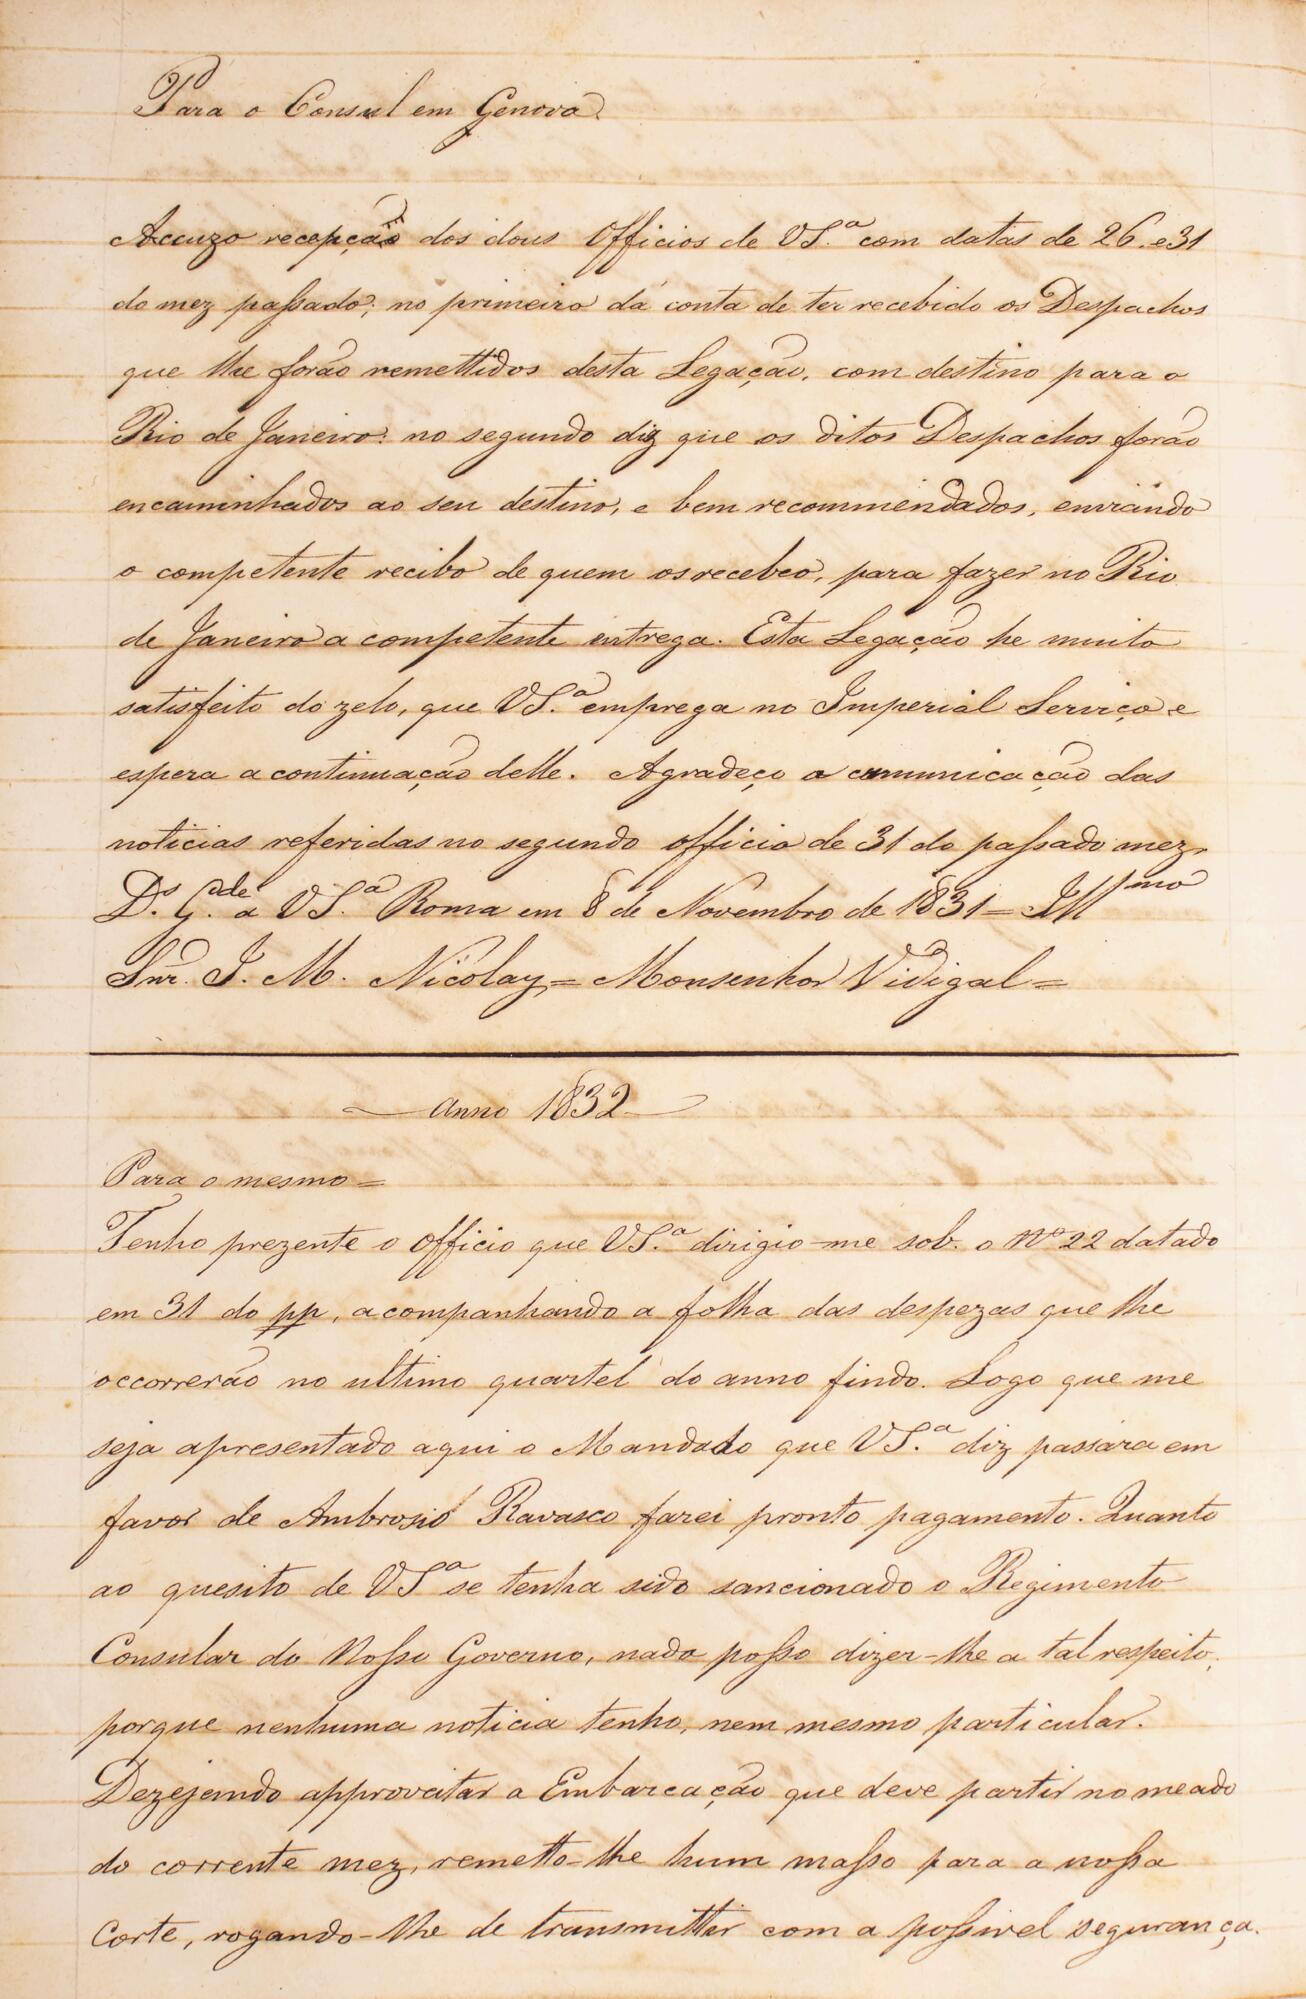 Para o Consul em Genova
Accuzo recepção dos dous Officios de VS.ª com datas de 26. e 31
do mez passado; no primeiro dá conta de ter recebido os Despachos
que lhe forão remettidos desta Legação, com destino para o
Rio de Janeiro: no segundo diz que os ditos Despachos forão
encaminhados ao seu destino, e bem recommendados, enviando
o competente recibo de quem os recebeo, para fazer no Rio
de Janeiro a competente entrega. Esta Legação he muito
satisfeito do zelo, que VS.ª emprega no Imperial Serviço e
espera a continuação delle. Agradeço a comunicação das
noticias referidas no segundo officio de 31 do passado mez.
D.s G.de a VS.ª Roma em 8 de Novembro de 1831 = Illmo
Snr. J. M. Nicolay = Monsenhor Vidigal =
Anno 1832
Para o mesmo =
Tenho prezente o Officio que VS.ª dirigio-me sob. o Nº 22 datado
em 31 do pp, acompanhando a folha das despezas que lhe
occorrerão no ultimo quartel do anno findo. Logo que me
seja apresentado aqui o Mandado que VS.ª diz passára em
favor de Ambrosio Ravasco farei pronto pagamento. Quanto
ao quesito de VSª se tenha sido sancionado o Regimento
Consular do Nosso Governo, nada posso dizer-lhe a tal respeito,
porque nenhuma noticia tenho, nem mesmo particular.
Dezejando approveitar a Embarcação que deve partir no meado
do corrente mez, remetto-lhe hum masso para a nossa
Corte, rogando-lhe de transmitter com a possivel segurança.